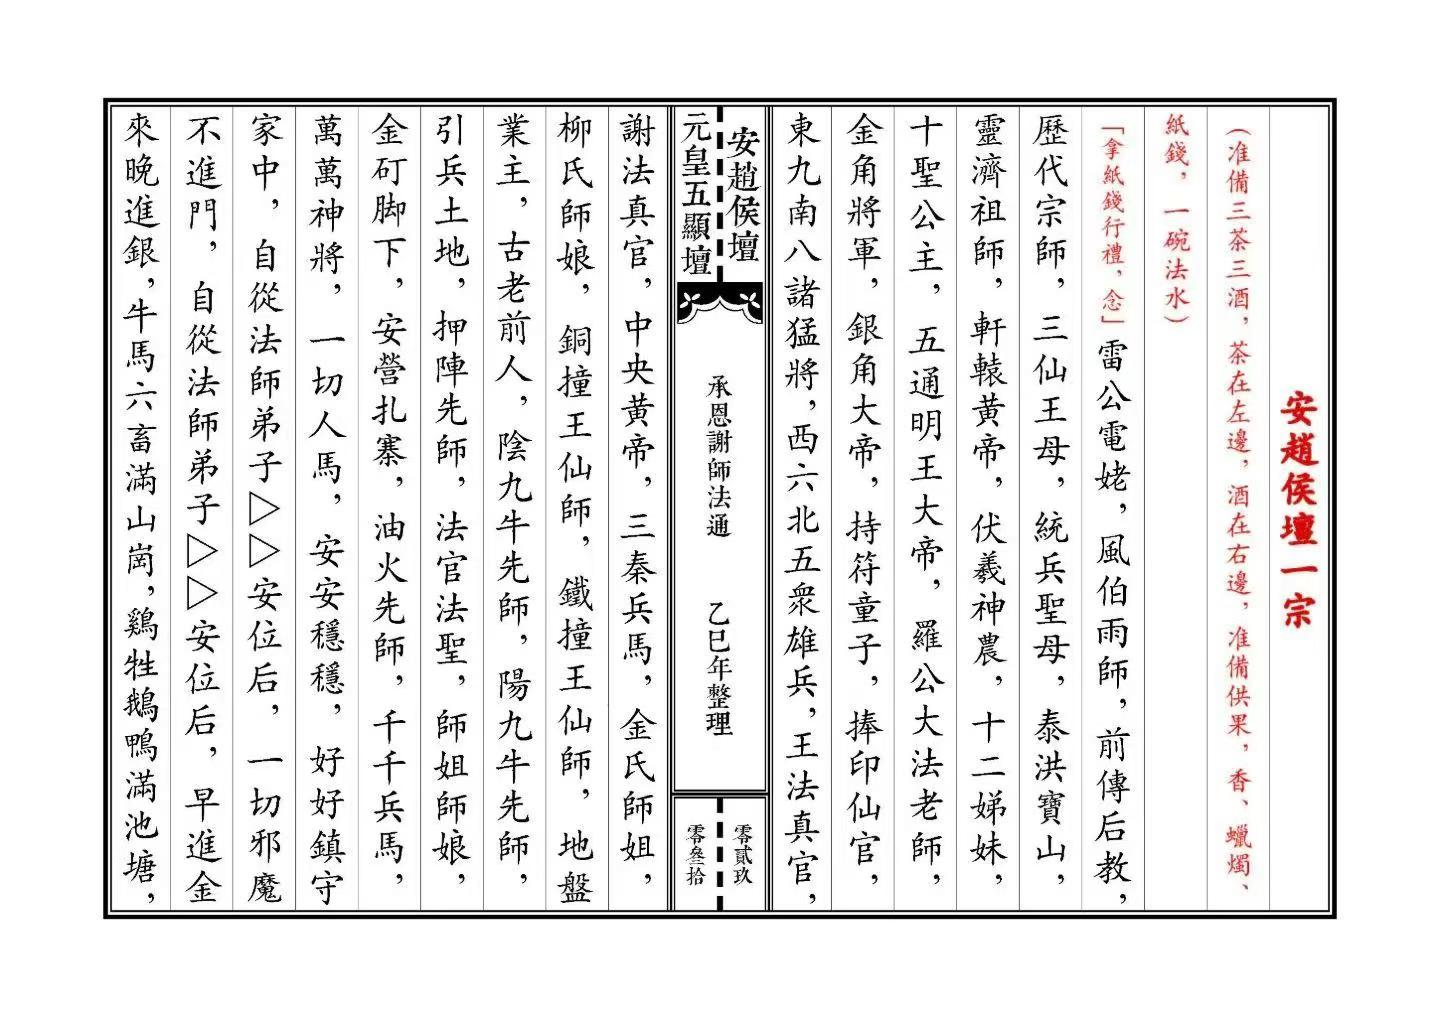 安趙侯壇一宗
（准備三茶三酒，茶在左邊，酒在右邊，准備供果，香、蠟燭、
紙錢，一碗法水）
「拿紙錢行禮，念」雷公電姥，風伯雨師，前傳后教，
歷代宗師，三仙王母，統兵聖母，泰洪寶山，
靈濟祖師，軒轅黄帝，伏羲神農，十二娣妹，
十聖公主，五通明王大帝，羅公大法老師，
金角將軍，銀角大帝，持符童子，捧印仙官，
東九南八諸猛將，西六北五衆雄兵，王法真官，
安趙侯壇
元皇五顯壇
承恩謝師法通 乙巳年整理
零貳玖
零叁拾
謝法真官，中央黄帝，三秦兵馬，金氏師姐，
柳氏師娘，銅撞王仙師，鐵撞王仙師，地盤
業主，古老前人，陰九牛先師，陽九牛先師，
引兵土地，押陣先師，法官法聖，師姐師娘，
金矴脚下，安營扎寨，油火先師，千千兵馬，
萬萬神將，一切人馬，安安穩穩，好好鎮守
家中，自從法師弟子▷▷安位后，一切邪魔
不進門，自從法師弟子▷▷安位后，早進金
來晚進銀，牛馬六畜滿山崗，鷄牲鵝鴨滿池塘，